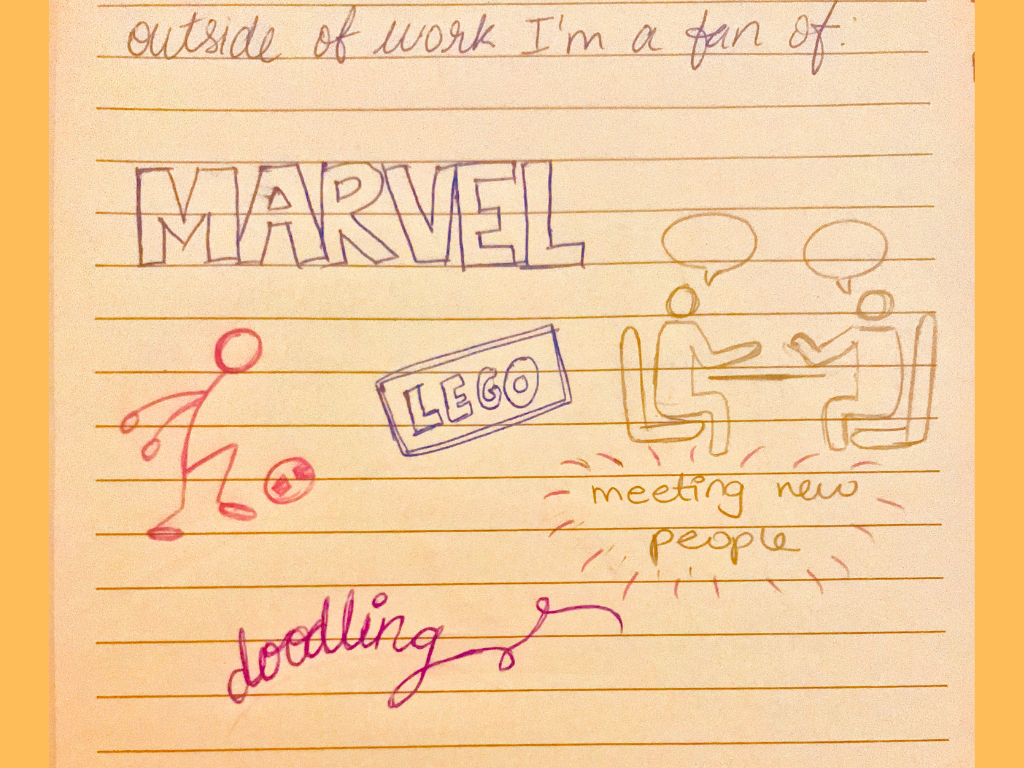 outside of work I'm a fan of:
MARVEL
LEGO
meeting new
people
doodling